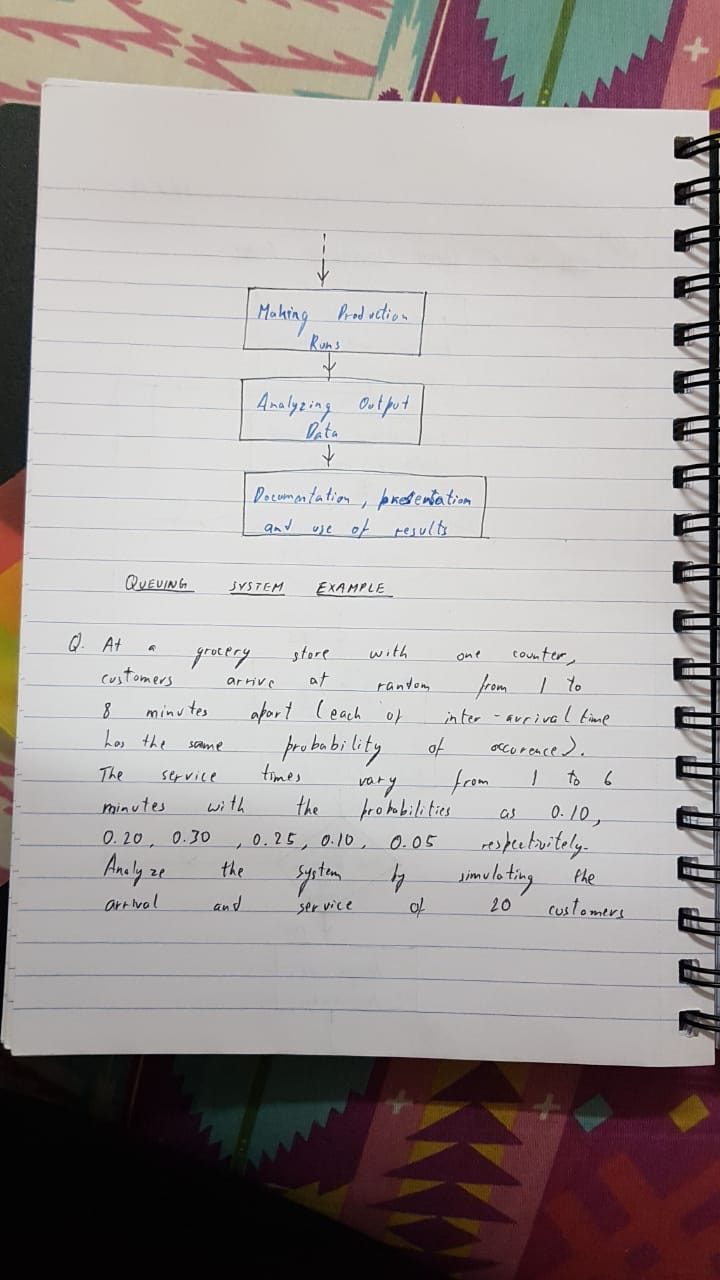 Making Production
Runs
Analyzing Output
Data
Documentation, presentation
and use of results
QUEUING SYSTEM EXAMPLE
Q. At a grocery store with one counter,
customers arrive at random from 1 to
8 minutes apart (each of inter-arrival time
has the same probability of occurence).
The service times vary from 1 to 6
minutes with the probabilities as 0.10,
0.20, 0.30, 0.25, 0.10, 0.05 respectivitely.
Analyze the system by simulating the
arrival and service of 20 customers